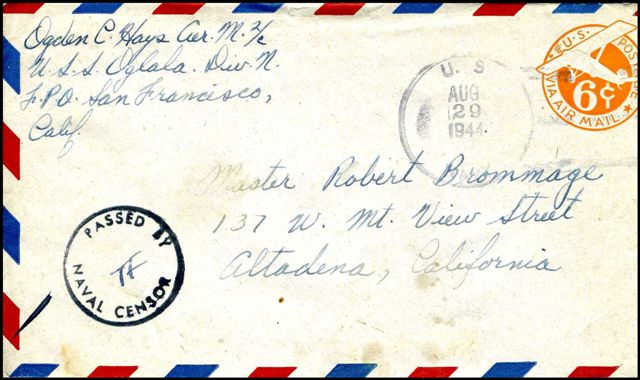 Ogden C. Hays Cer. M. 2/c
U. S. S. Oglala. Div. N.
F.P.O. San Francisco,
Calif
U. S
AUG
29
1944
U.S. POSTAGE
6¢
VIA AIR MAIL
Master Robert Brommage
137 W. Mt. View Street
Altadena, California
PASSED BY
NAVAL CENSOR